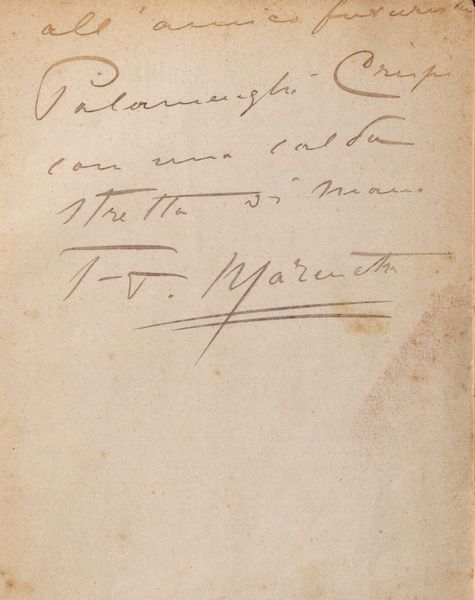 all'amico futurista
Palamenghi Crispi
con una calda
stretta di mano
F. T. Marinetti